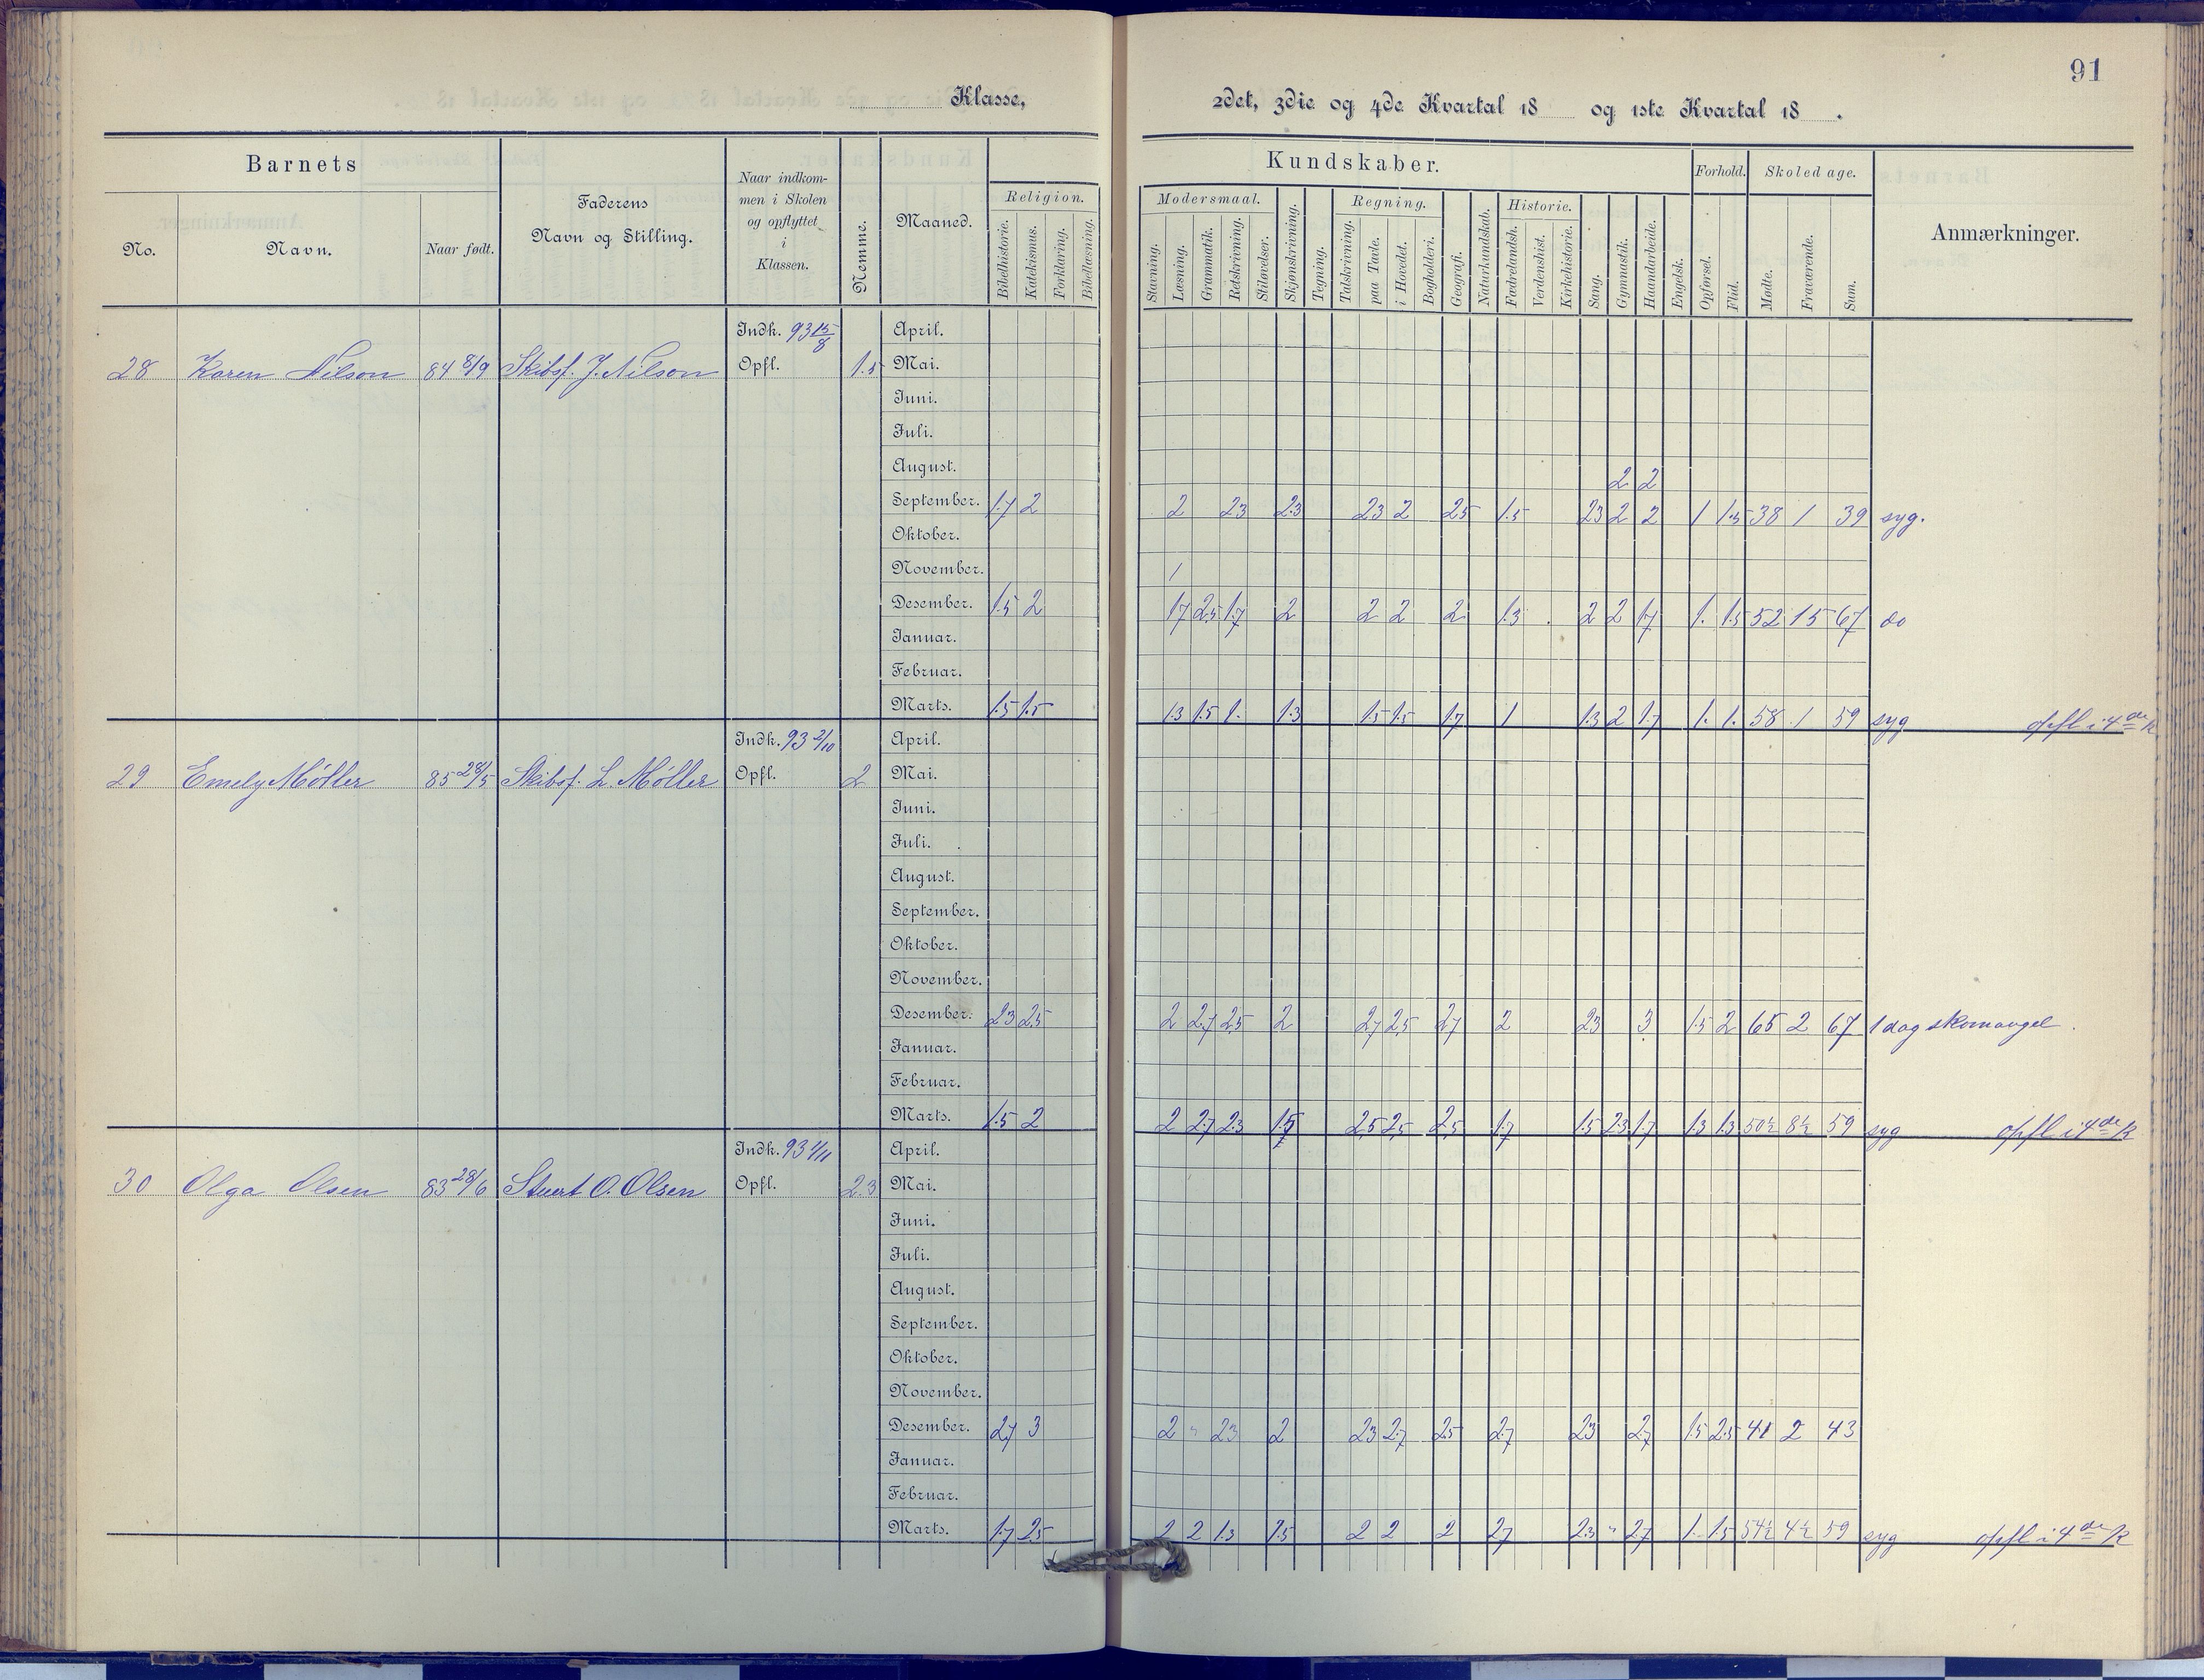 91
Klasse, 2det, 3die og 4de Kvartal 18 og 1ste Kvartal 18 .
Barnets
No.
Navn.
Naar født.
Faderens
Navn og Stilling.
Naar indkom-
men i Skolen
og opflyttet
i
Klassen.
Nemme.
Maaned.
Kundskaber.
Religion.
Bibelhistorie.
Katekismus.
Forklaring.
Bibellæsning.
Modersmaal.
Stavning.
Læsning.
Grammatik.
Retskrivning.
Stiløvelser.
Skjønskrivning.
Tegning.
Regning.
Talskrivning.
paa Tavle.
i Hovedet.
Bogholderi.
Geografi.
Naturkundskab.
Historie.
Fædrelandsh.
Verdenshist.
Kirkehistorie.
Sang.
Gymnastik.
Haandarbeide.
Engelsk.
Forhold.
Opførsel.
Flid.
Skoledage.
Mødte.
Fraværende.
Sum.
Anmærkninger.
Indk. 93 15/8 April.
28 Karen Nilson 84 8/9 Skibsf. J. Nilson Opfl. 1.5 Mai.
Juni.
Juli.
August.
2 2
September. 1.7 2 2 23 2.3 23 2 25 1.5 23 2 2 1 1.5 38 1 39 syg.
Oktober.
November.
1
Desember. 1.5 2 17 2.5 1.7 2 2 2 2 1.3 2 2 1.7 1. 1.5 52 15 67 do
Januar.
Februar.
Marts. 1.5 1.5 1.3 1.5 1. 1.3 1.5 1.5 1.7 1 1.3 2 1.7 1. 1. 58 1 59 syg opfl i 4de K
Indk. 93 2/10 April.
29 Emely Møller 85 28/5 Skibsf. L. Møller Opfl. 2 Mai.
Juni.
Juli.
August.
September.
Oktober.
November.
Desember. 23 25 2 2.7 25 2 2.7 2.5 2.7 2 23 3 1.5 2 65 2 67 1 dag skomangel
Januar.
Februar.
Marts. 1.5 2 2 2.7 2.3 1.5 2.5 2.5 2.5 1.7 1.5 2.3 1.7 1.3 1.3 50½ 8½ 59 syg opfl i 4de K
Indk. 93 1/11 April.
30 Olga Olsen 83 28/6 Stuert O. Olsen Opfl. 2.3 Mai.
Juni.
Juli.
August.
September.
Oktober.
November.
Desember. 2.7 3 2 " 23 2 23 2.7 2.5 2.7 23 2.7 1.5 2.5 41 2 43
Januar.
Februar.
Marts. 1.7 2.5 2 2 1.3 1.5 2 2 2 2.7 2.3 " 2.7 1. 1.5 54½ 4½ 59 syg opfl i 4de K